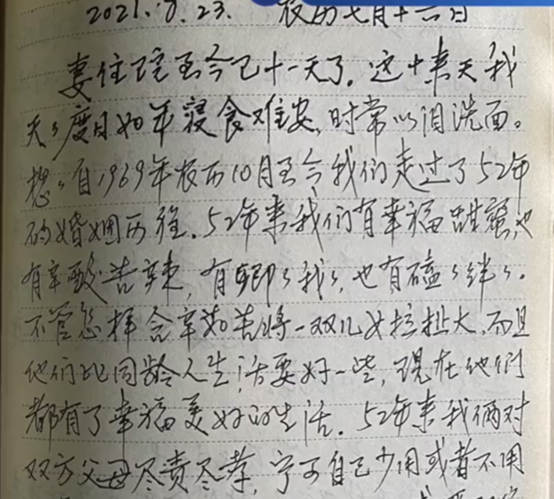 2021.8.23. 农历七月十六日
妻住院至今已十一天了。这十来天我
天天度日如年寝食难安,时常以泪洗面。
想想自1969年农历10月至今我们走过了52年
的婚姻历程。52年来我们有幸福甜蜜,也
有辛酸苦辣,有卿卿我我,也有磕磕绊绊。
不管怎样含辛茹苦将一双儿女拉扯大,而且
他们比同龄人生活要好一些,现在他们
都有了幸福美好的生活。52年来我俩对
双方父母尽责尽孝,宁可自己少用或者不用